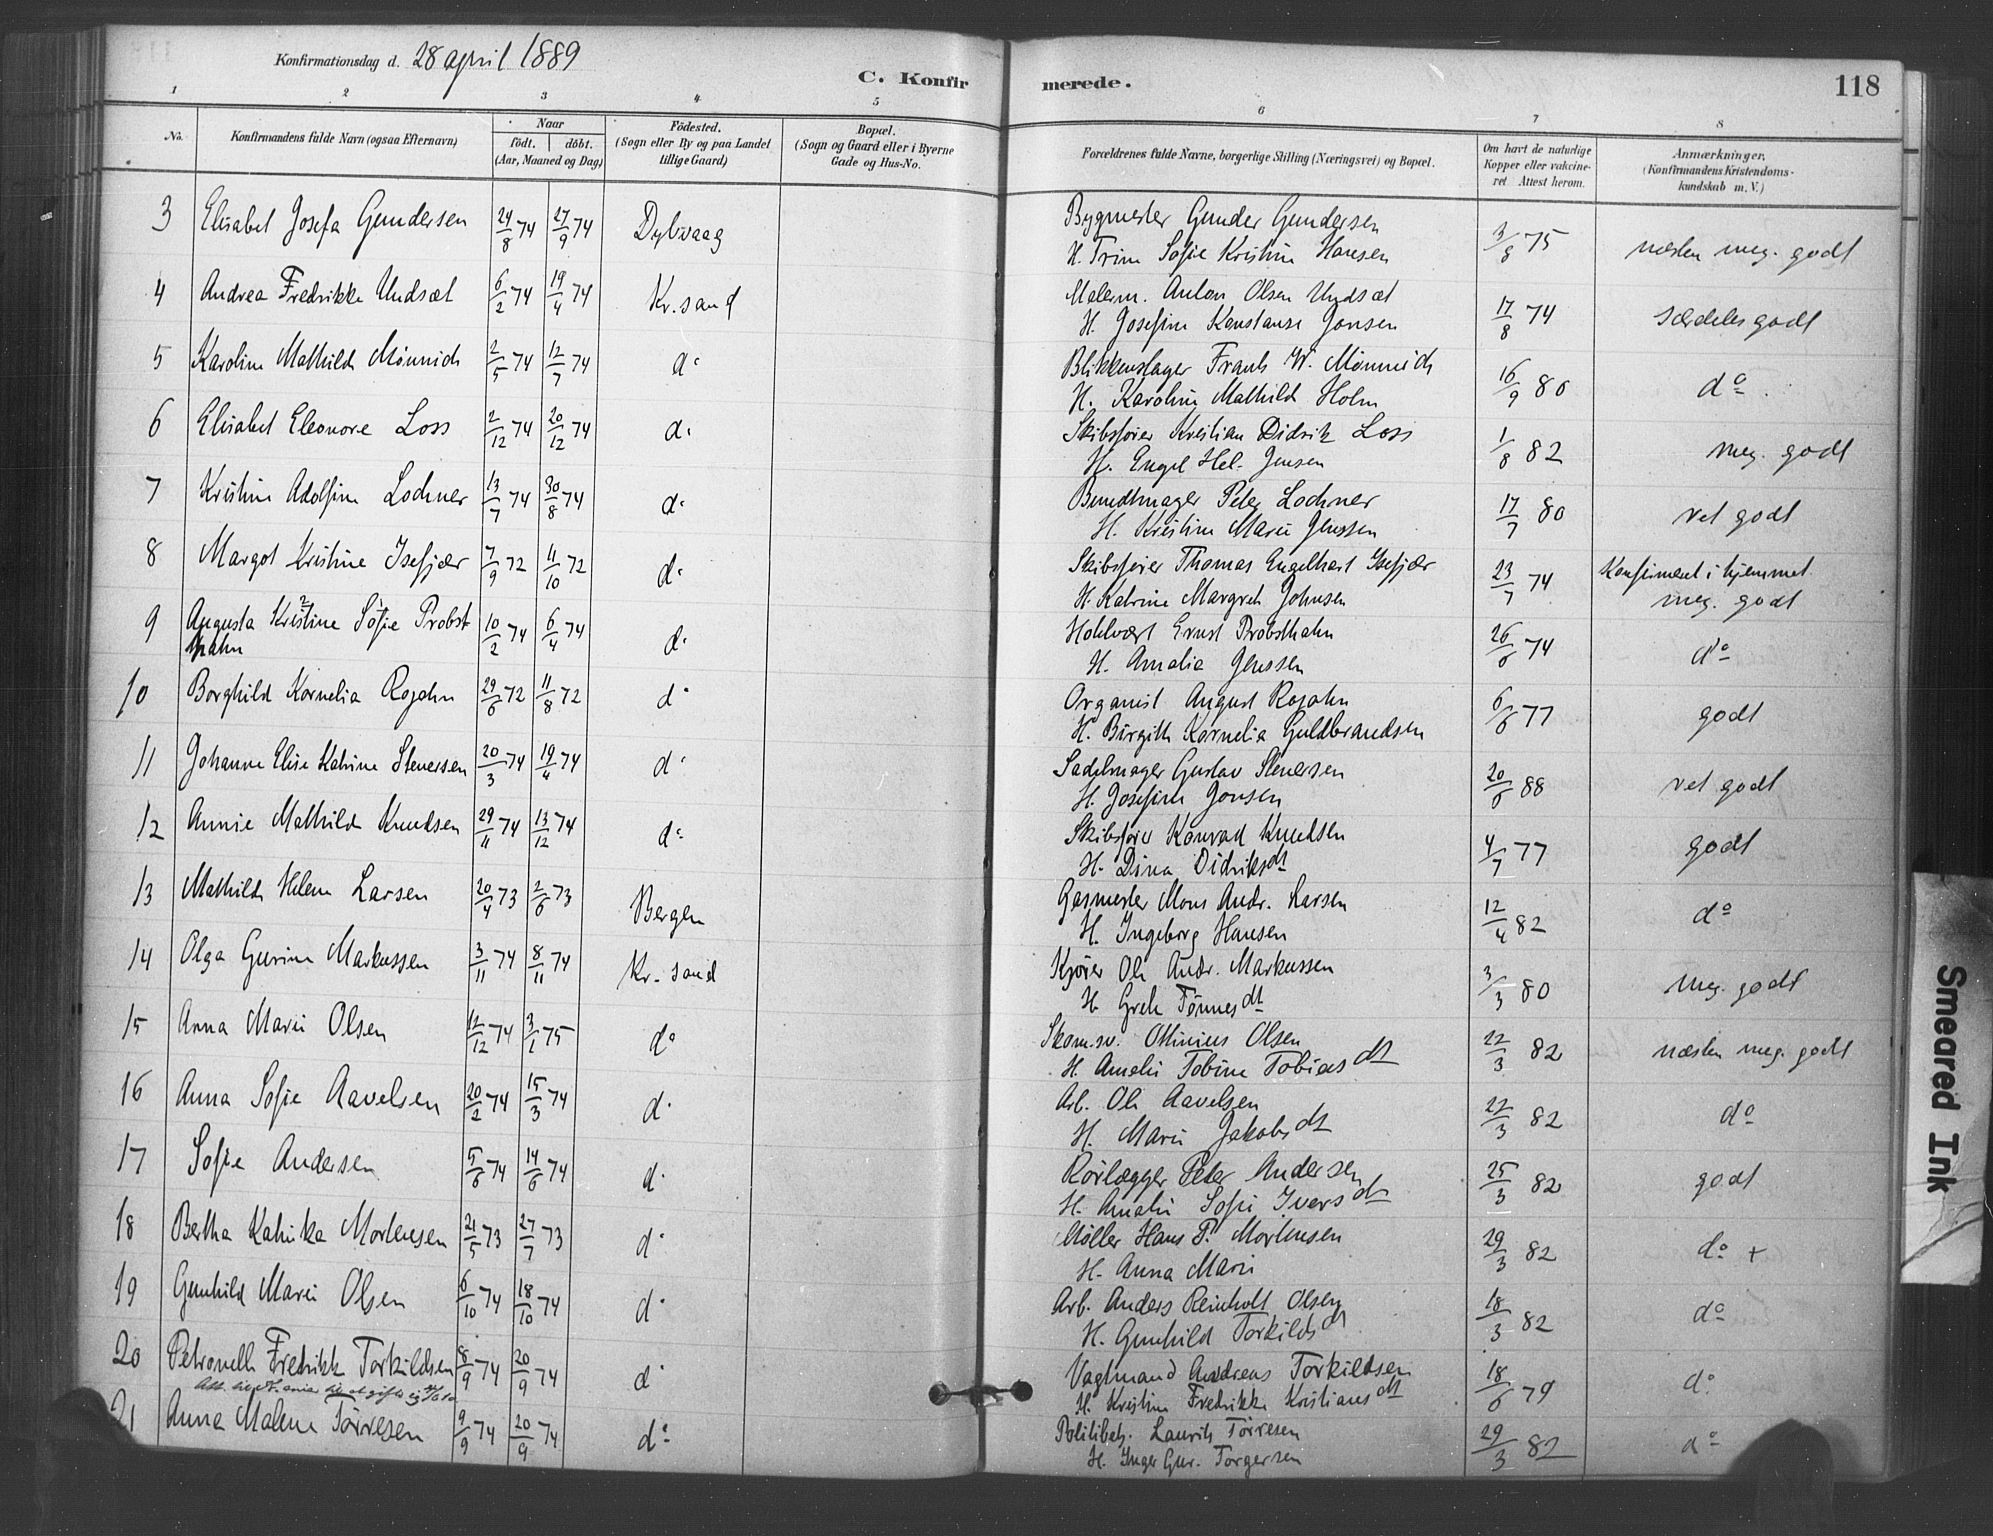 Konfirmationsdag d. 28 april 1889
C. Konfir
merede.
118
1 2 3 4 5 6 7 8
No.
Konfirmandens fulde Navn (ogsaa Efternavn)
Naar
födt. döbt.
(Aar, Maaned og Dag)
Födested.
(Sogn eller By og paa Landet
tillige Gaard)
Bopæl.
(Sogn og Gaard eller i Byerne
Gade og Hus-No.
Forældrenes fulde Navne, borgerlige Stilling (Næringsvei) og Bopæl.
Om havt de naturlige
Kopper eller vakcine-
ret Attest herom.
Anmærkninger.
(Konfirmandens Kristendoms-
kundskab m. V.)
3 Elisabet Josefa Gundersen 24/8 74 27/9 74 Dybvaag Bygmester Gunder Gundersen 3/8 75 næsten meg. godt
H. Trine Sofie Kristine Hansen
4 Andrea Fredrikke Undsæt 6/2 74 19/4 74 Kr.sand Malerm. Anton Olsen Undsæt 17/8 74 særdeles godt
H. Josefine Konstanse Jonsen
5 Karoline Mathilde Mönnich 2/5 74 12/7 74 do Blikkenslager Frants W. Mönnich 16/9 80 do
H. Karoline Mathilde Holm
6 Elisabet Eleonore Loss 2/12 74 20/12 74 do Skibsfører Kristian Didrik Loss 1/8 82 meg. godt
H. Engel Hel. Jensen
7 Kristine Adolfine Lochner 13/7 74 30/8 74 do Bundtmager Peter Lochner 17/7 80 vel godt
H. Kristine Marie Jenssen
8 Margot Kristine Isefjær 7/9 72 11/10 72 do Skibsfører Thomas Engelhart Isefjær 23/7 74 Konfirmeret i hjemmet.
H. Katrine Margreth Johnsen meg. godt
9 Augusta Kristine Sofie Probst 10/2 74 6/4 74 do Hotelvært Ernst Probsthahn 26/6 74 do
hahn H. Amalia Jenssen
10 Borghild Kornelia Rojahn 29/6 72 11/8 72 do Organist August Rojahn 6/6 77 godt
H. Birgitte Kornelia Guldbrandsen
11 Johanne Elise Katrine Stenersen 20/3 74 19/4 74 do Sadelmager Gustav Stenersen 20/6 88 vel godt
H. Josefine Jonsen
12 Annie Mathilde Knudsen 29/11 74 13/12 74 do Skibsfører Konrad Knudsen 4/7 77 godt
H. Dina Didriksdt
13 Mathilde Helene Larsen 20/4 73 2/6 73 Bergen Gasmester Mons Andr. Larsen 12/4 82 do
H. Ingeborg Hansen
14 Olga Gurine Markussen 3/11 74 8/11 74 Kr.sand Kjører Ole Andr. Markussen 3/3 80 meg. godt
H. Grete Tønnesdt
15 Anna Marie Olsen 12/12 74 3/1 75 do Skom.sv. Ottinius Olsen 22/3 82 næsten meg. godt
H. Amalie Tobine Tobiasdt
16 Anna Sofie Aavelsen 20/2 74 15/3 74 do Arb. Ole Aavelsen 22/3 82 do
H. Marie Jakobsdt
17 Sofie Andersen 5/6 74 14/6 74 do Rörlægger Peter Andersen 25/3 82 godt
H. Amalie Sofie Iversdt
18 Bertha Katinka Mortensen 21/5 73 27/7 73 do Møller Hans P. Mortensen 29/3 82 do +
H. Anna Marie
19 Gunhild Marie Olsen 6/10 74 18/10 74 do Arb. Anders Reinholt Olsen 18/3 82 do
H. Gunhild Torkildsdt
20 Petronelle Fredrikke Torkildsen 8/9 74 20/9 74 do Vagtmand Andreas Torkildsen 18/6 79 do
H. Kristine Fredrikke Kristiansdt
21 Anna Malene Tørresen 9/9 74 20/9 74 do Politibetj. Laurits Tørresen 29/3 82 do
H. Inger Gur. Torgersen
Smeared Ink